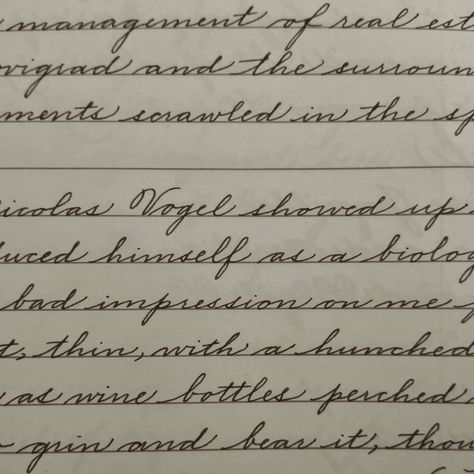 management of real est
vigrad and the surroun
ments scrawled in the sp
icolas Vogel showed up
duced himself as a biolog
bad impression on me f
t, thin, with a hunched
as wine bottles perched
grin and bear it, thou